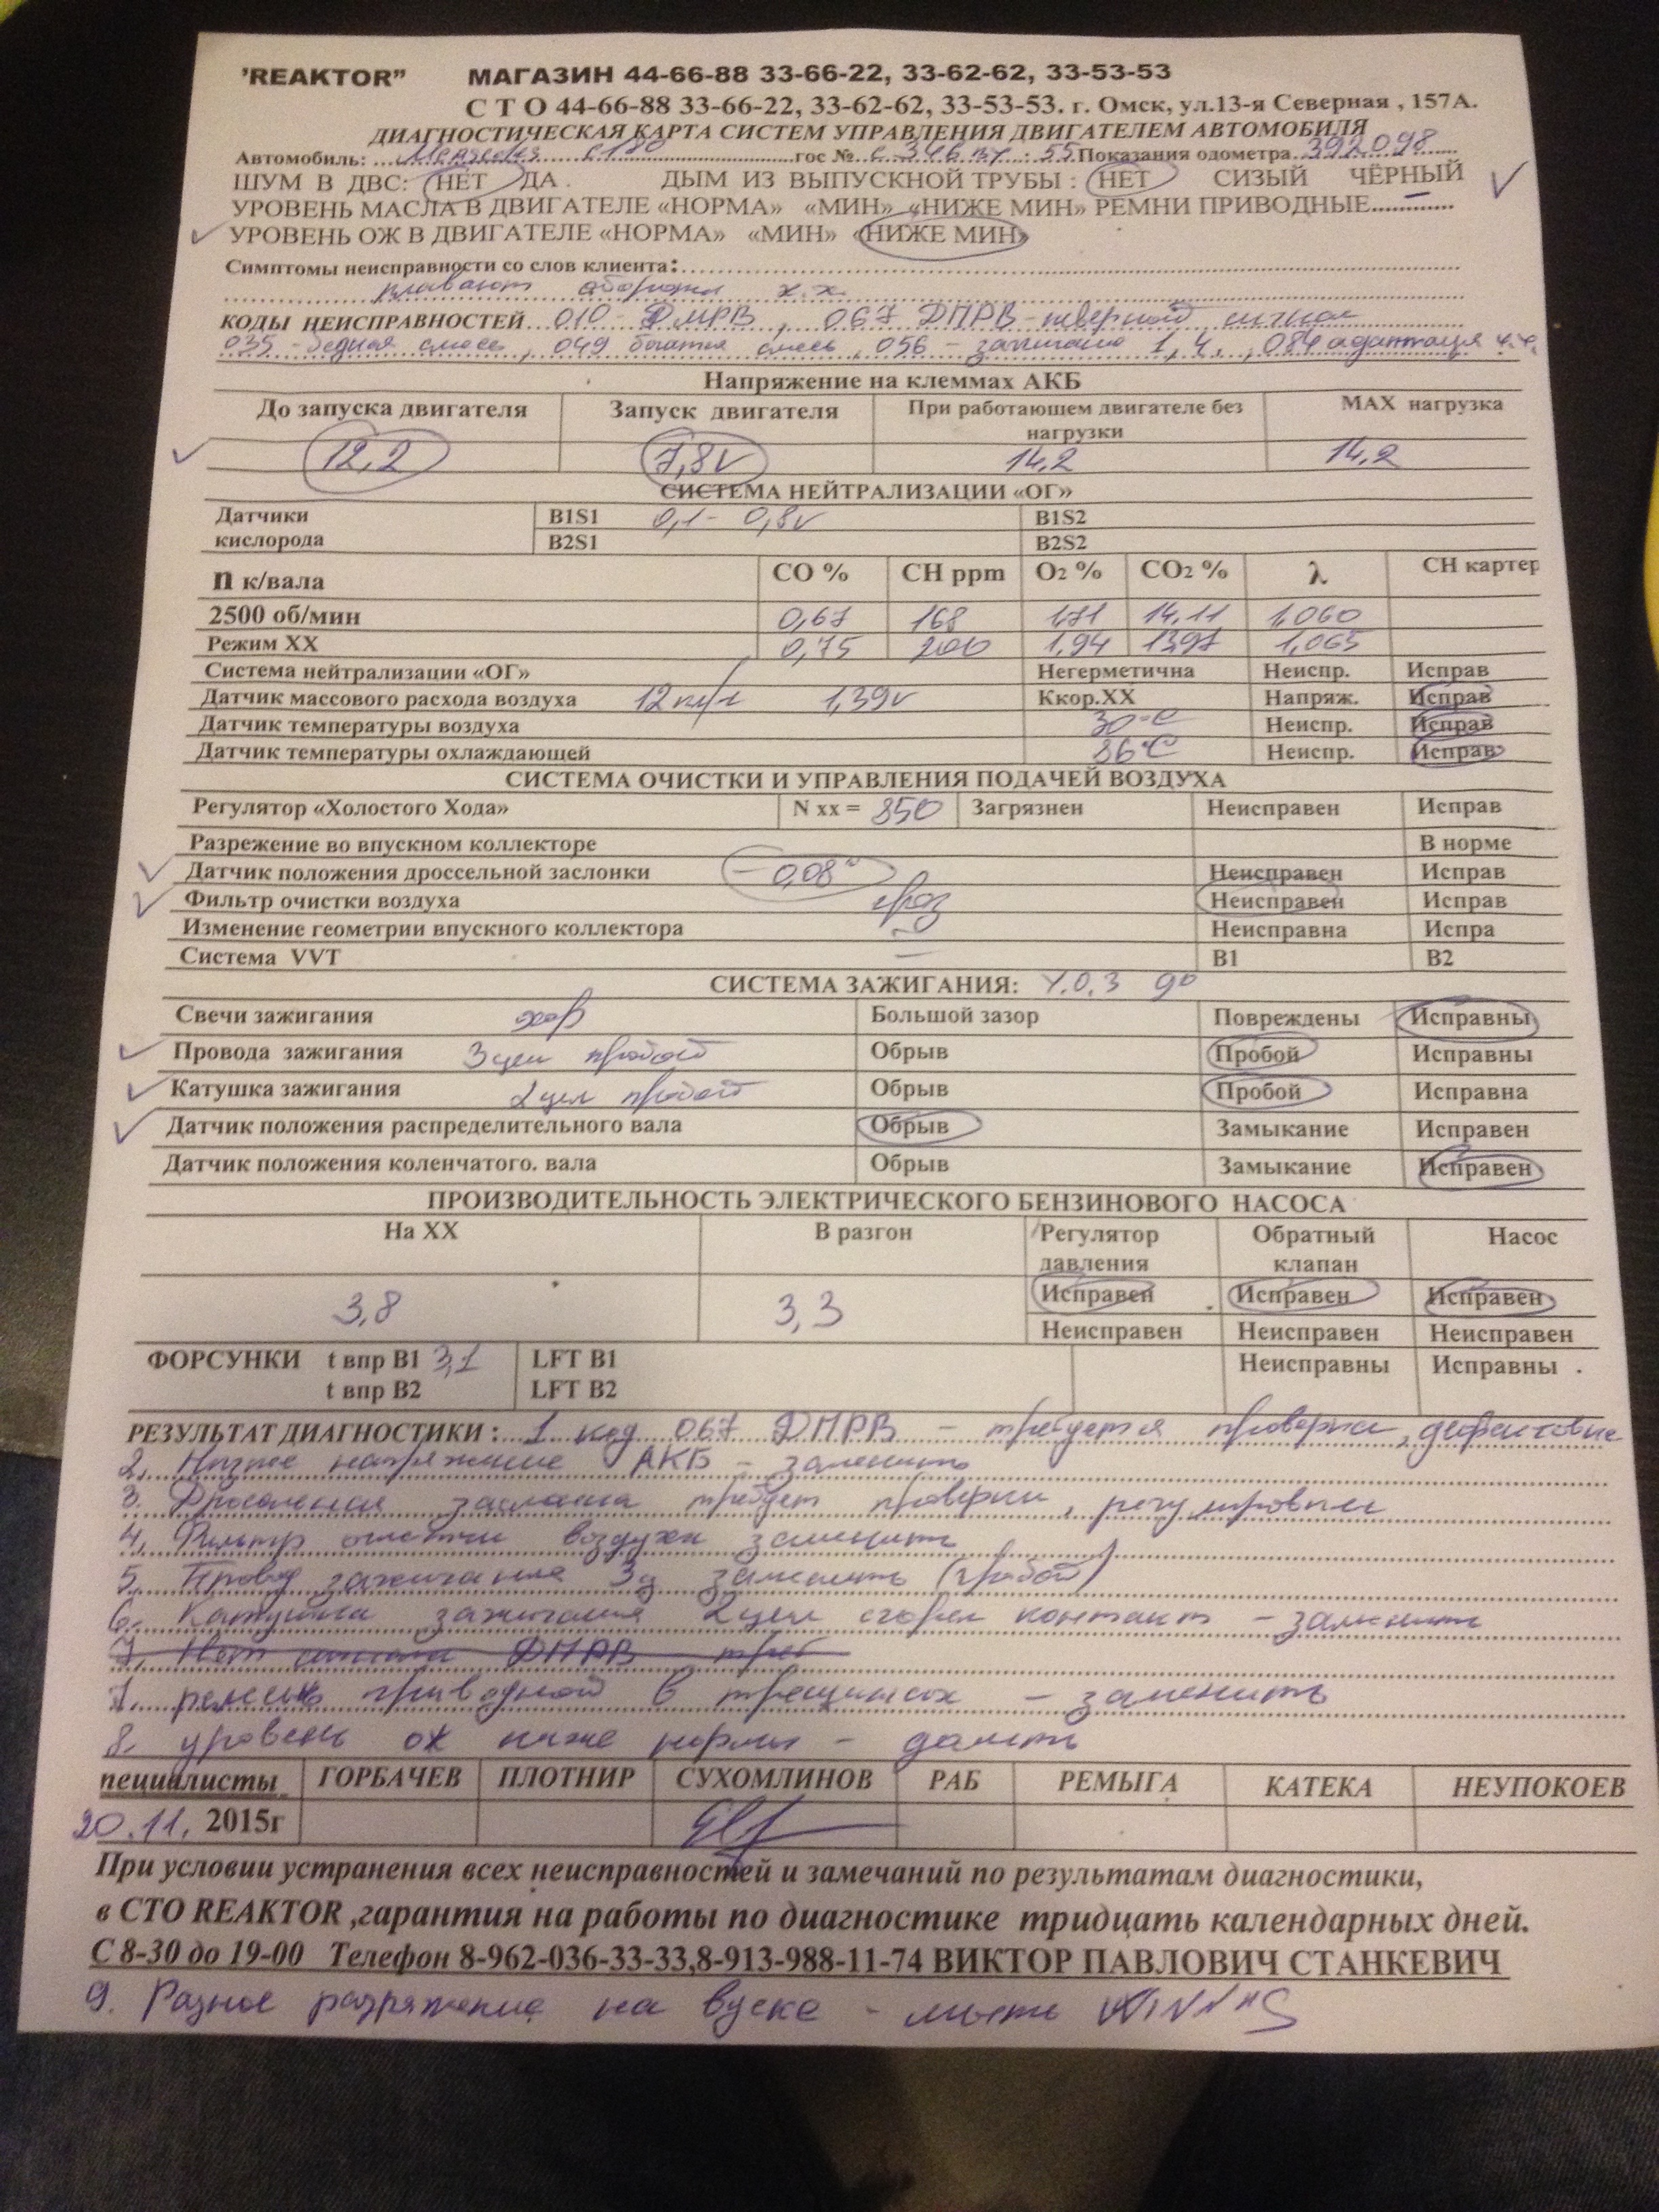 'REAKTOR" МАГАЗИН 44-66-88 33-66-22, 33-62-62, 33-53-53
С Т О 44-66-88 33-66-22, 33-62-62, 33-53-53. г. Омск, ул.13-я Северная , 157А.
ДИАГНОСТИЧЕСКАЯ КАРТА СИСТЕМ УПРАВЛЕНИЯ ДВИГАТЕЛЕМ АВТОМОБИЛЯ
Автомобиль: Mercedes c180 гос № 55 Показания одометра 392098
ШУМ В ДВС: НЕТ ДА . ДЫМ ИЗ ВЫПУСКНОЙ ТРУБЫ : НЕТ СИЗЫЙ ЧЁРНЫЙ
УРОВЕНЬ МАСЛА В ДВИГАТЕЛЕ «НОРМА» «МИН» «НИЖЕ МИН» РЕМНИ ПРИВОДНЫЕ
УРОВЕНЬ ОЖ В ДВИГАТЕЛЕ «НОРМА» «МИН» «НИЖЕ МИН»
Симптомы неисправности со слов клиента:
плавают обороты х.х.
КОДЫ НЕИСПРАВНОСТЕЙ 010 - ДМРВ , 067 ДПРВ - неверный сигнал
035 - бедная смесь , 049 богатая смесь , 056 - зажигание 1, 4. , 084 адаптация ч.ч.
Напряжение на клеммах АКБ
До запуска двигателя Запуск двигателя При работающем двигателе без нагрузки МАХ нагрузка
12,2 7,8v 14,2 14,2
СИСТЕМА НЕЙТРАЛИЗАЦИИ «ОГ»
Датчики кислорода B1S1 0,1 - 0,8v B1S2
B2S1 B2S2
n к/вала СО % СН ppm О2 % СО2 % λ СН картер
2500 об/мин 0,67 168 1,71 14,11 1,060
Режим ХХ 0,75 200 1,94 13,97 1,065
Система нейтрализации «ОГ» Негерметична Неиспр. Исправ
Датчик массового расхода воздуха 12 кг/ч 1,39v Ккор.ХХ Напряж. Исправ
Датчик температуры воздуха 30°C Неиспр. Исправ
Датчик температуры охлаждающей 86°C Неиспр. Исправ
СИСТЕМА ОЧИСТКИ И УПРАВЛЕНИЯ ПОДАЧЕЙ ВОЗДУХА
Регулятор «Холостого Хода» N хх = 850 Загрязнен Неисправен Исправ
Разрежение во впускном коллекторе В норме
Датчик положения дроссельной заслонки - 0,08 Неисправен Исправ
Фильтр очистки воздуха гряз Неисправен Исправ
Изменение геометрии впускного коллектора Неисправна Испра
Система VVT — В1 В2
СИСТЕМА ЗАЖИГАНИЯ: У.О.З 9°
Свечи зажигания Большой зазор Повреждены Исправны
Провода зажигания 3 цил пробой Обрыв Пробой Исправны
Катушка зажигания 2 цил пробой Обрыв Пробой Исправна
Датчик положения распределительного вала Обрыв Замыкание Исправен
Датчик положения коленчатого. вала Обрыв Замыкание Исправен
ПРОИЗВОДИТЕЛЬНОСТЬ ЭЛЕКТРИЧЕСКОГО БЕНЗИНОВОГО НАСОСА
На ХХ В разгон Регулятор давления Обратный клапан Насос
3,8 3,3 Исправен Исправен Исправен
Неисправен Неисправен Неисправен
ФОРСУНКИ t впр В1 3,1 LFT B1 Неисправны Исправны .
t впр В2 LFT B2
РЕЗУЛЬТАТ ДИАГНОСТИКИ : 1 код 067 ДПРВ - требуется проверка, дефектовка
2. Низкое напряжение АКБ - заменить
3. Дроссельная заслонка требует проверки, регулировки
4. Фильтр очистки воздуха заменить
5. Провод зажигания 3ц заменить (пробой)
6. Катушка зажигания 2 цил сгорел контакт - заменить
7. Нет сигнала ДПРВ треб
7. ремень приводной в трещинах - заменить
8. уровень ож ниже нормы - долить
пециалисты ГОРБАЧЕВ ПЛОТНИР СУХОМЛИНОВ РАБ РЕМЫГА КАТЕКА НЕУПОКОЕВ
20.11. 2015г
При условии устранения всех неисправностей и замечаний по результатам диагностики,
в СТО REAKTOR ,гарантия на работы по диагностике тридцать календарных дней.
С 8-30 до 19-00 Телефон 8-962-036-33-33,8-913-988-11-74 ВИКТОР ПАВЛОВИЧ СТАНКЕВИЧ
9. Разное разряжение на вуске - мыть WINNS